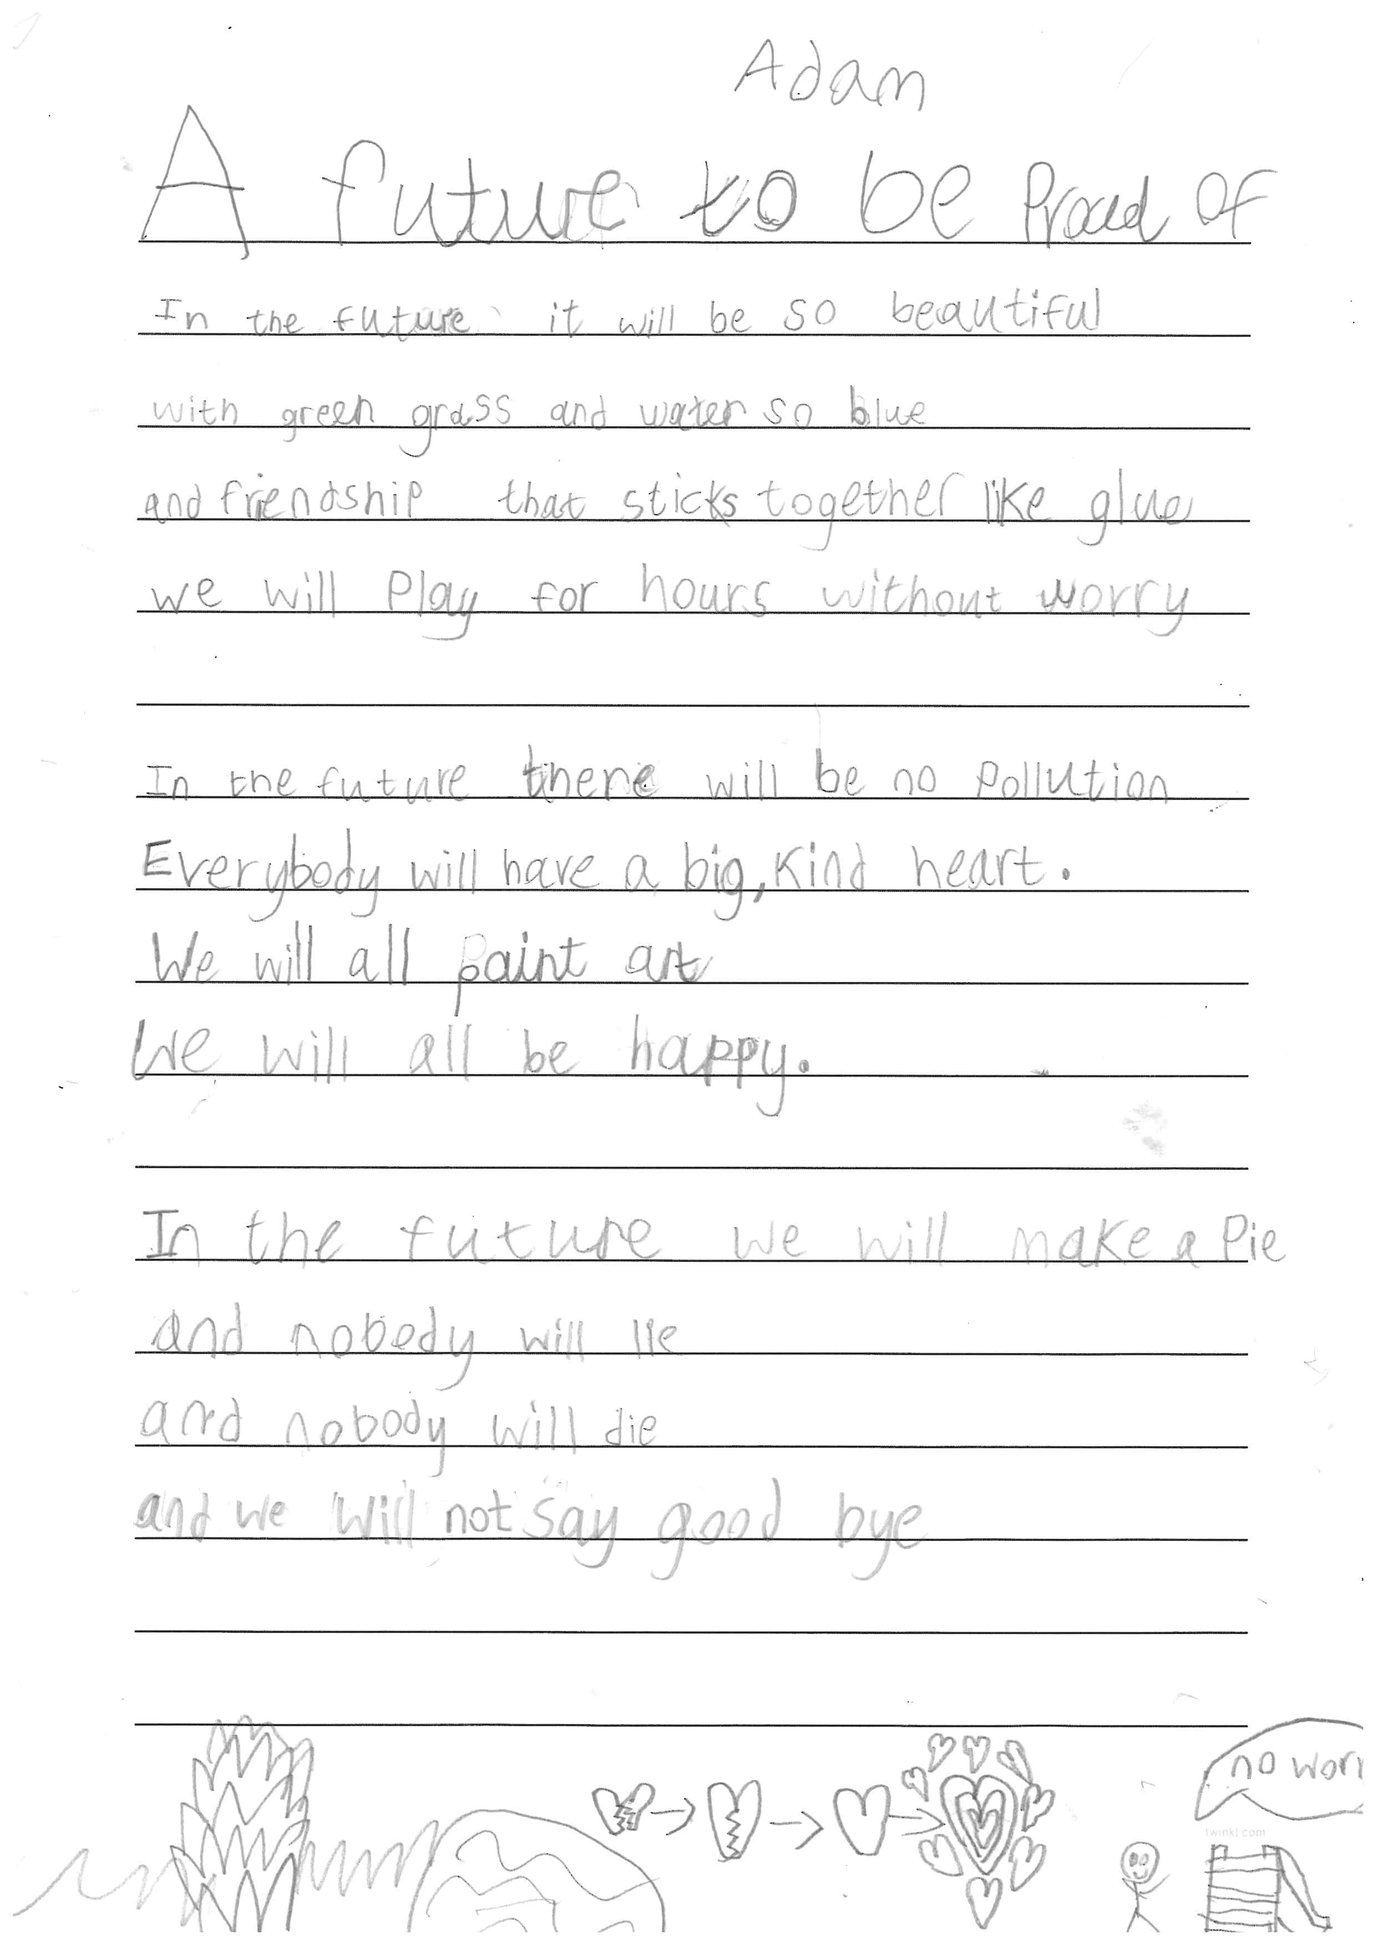 Adam
A future to be Proud of
In the future it will be so beautiful
with green grass and water so blue
and friendship that sticks together like glue
we will Play for hours without worry
In the future there will be no Pollution
Everybody will have a big, kind heart.
We will all paint art
We will all be happy.
In the future we will make a Pie
and nobody will lie
and nobody will die
and we will not say good bye
no worr
twinkl.com